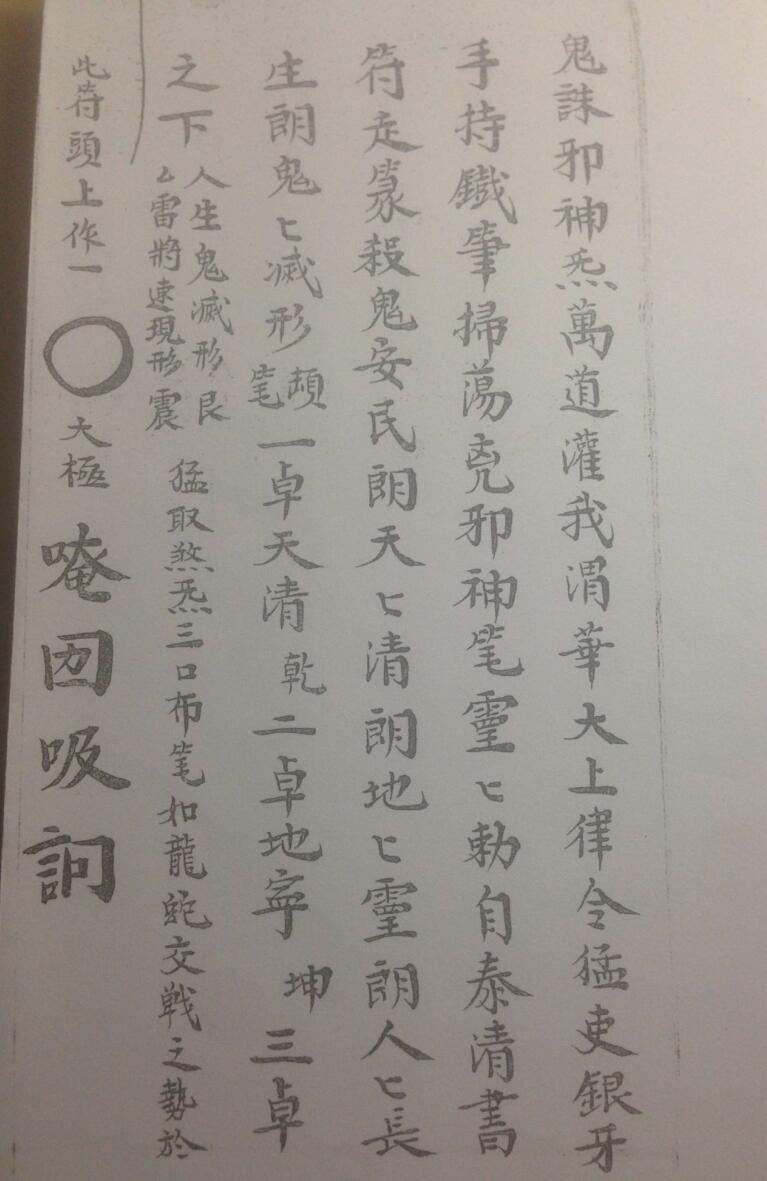 鬼誅邪神炁萬道灌我渭華大上律令猛吏銀牙
手持鐵筆掃蕩兇邪神笔靈匕勅自泰清書
符走篆殺鬼安民朗天匕清朗地匕靈朗人匕長
生朗鬼匕滅形 頓笔 一卓天清 乾 二卓地寜 坤 三卓
之下 人生鬼滅形 艮 雷將速現形 震 猛取煞炁三口布笔如龍蛇交戦之勢於
此符頭上作一〇大極 唵囙吸訶